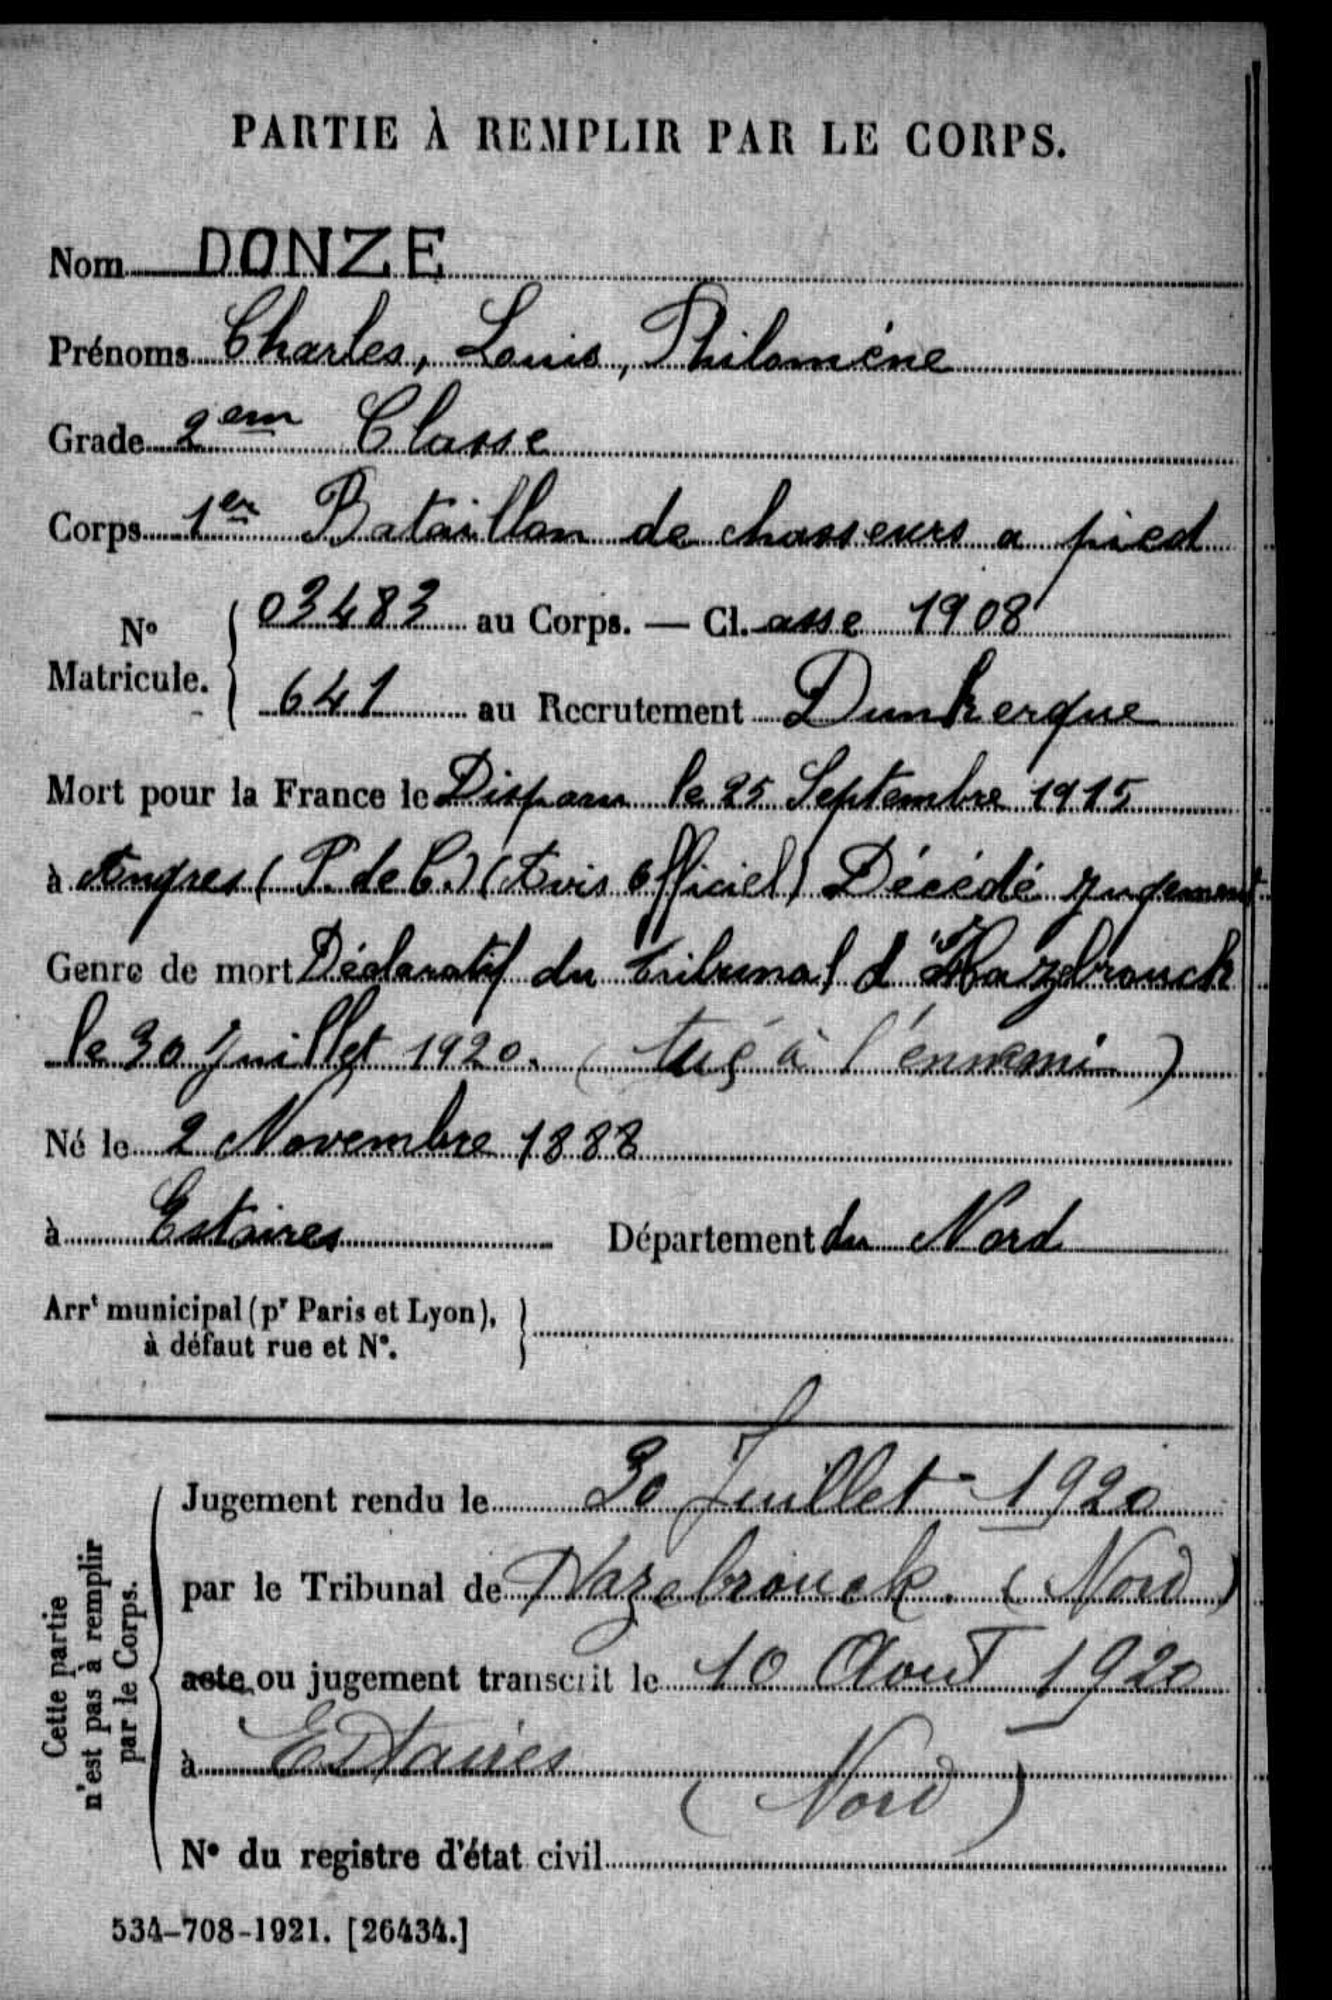 PARTIE À REMPLIR PAR LE CORPS.
Nom DONZE
Prénoms Charles, Louis, Philomène
Grade 2em Classe
Corps 1er Bataillon de chasseurs a pied
N° Matricule. { 03483 au Corps. — Cl. asse 1908
641 au Recrutement Dunkerque
Mort pour la France le Disparu le 25 Septembre 1915
à Angres (P. de C.) (Avis Officiel) Décédé Jugement
Genre de mort Déclaratif du tribunal d'Hazebrouck
le 30 Juillet 1920. (tué à l'ennemi)
Né le 2 Novembre 1888
à Estaires Département du Nord
Arrt municipal (pr Paris et Lyon), }
à défaut rue et N°.
Cette partie
n'est pas à remplir
par le Corps.
Jugement rendu le 30 Juillet - 1920
par le Tribunal de Hazebrouck. (Nord)
acte ou jugement transcrit le 10 Aout 1920
à Estaires (Nord)
N° du registre d'état civil
534-708-1921. [26434.]